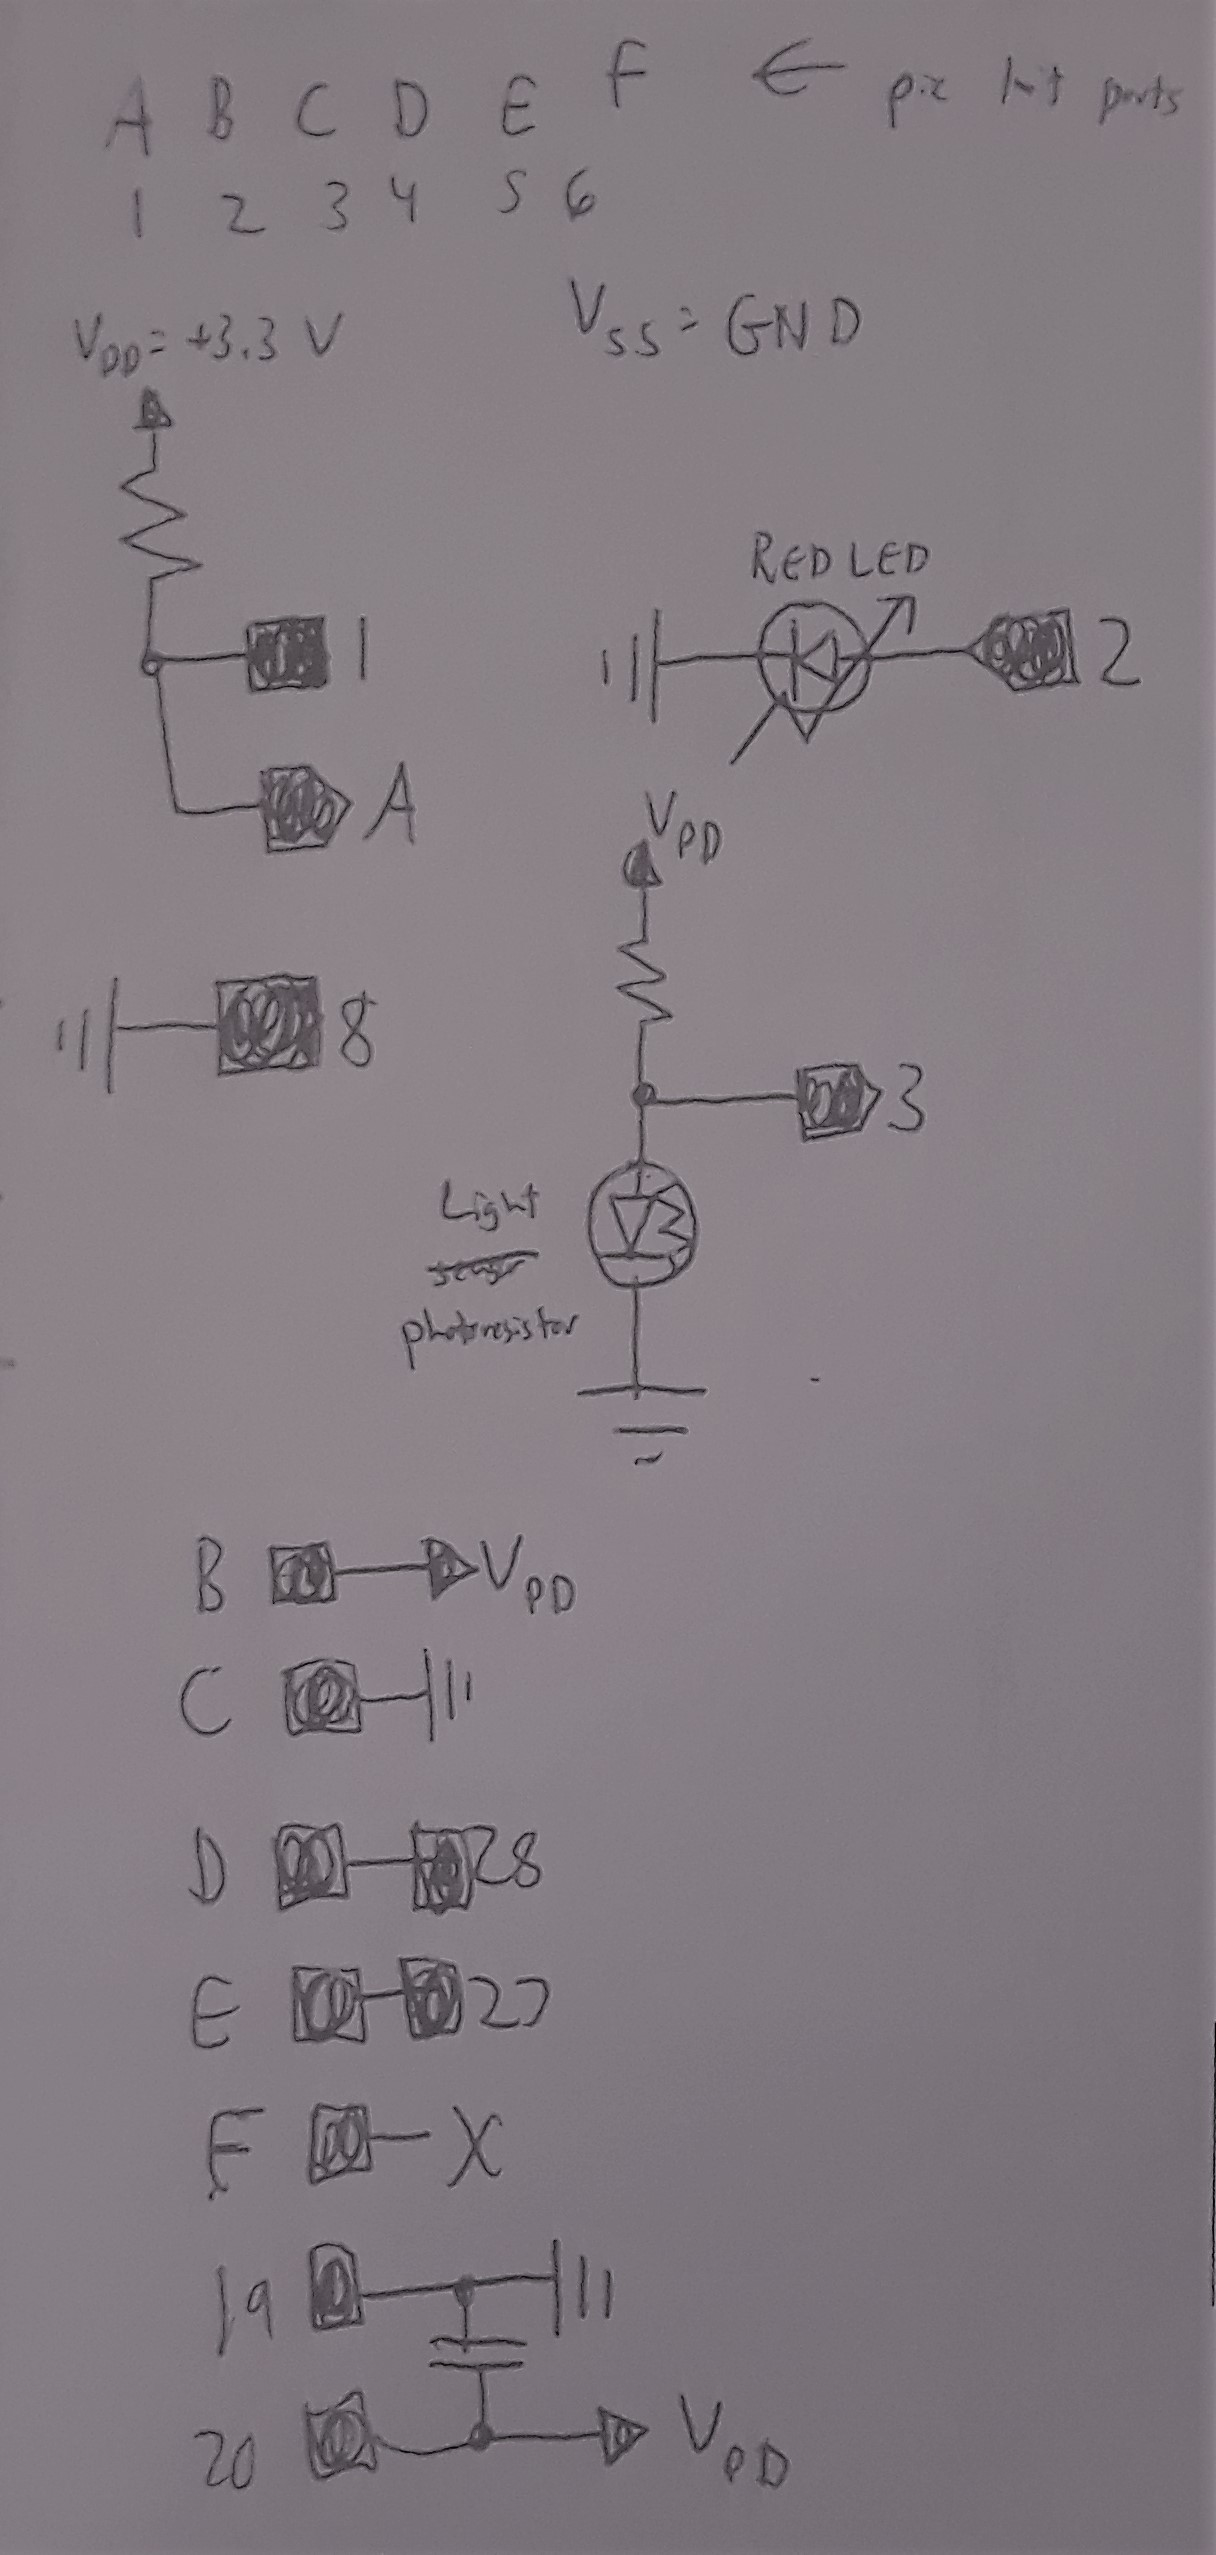 A B C D E F ← pic kit ports
1 2 3 4 5 6
VDD = +3.3 V
VSS = GND
RED LED
1
2
A
VDD
8
3
Light
sensor
photoresistor
B VDD
C
D 28
E 27
F X
19
20 VDD